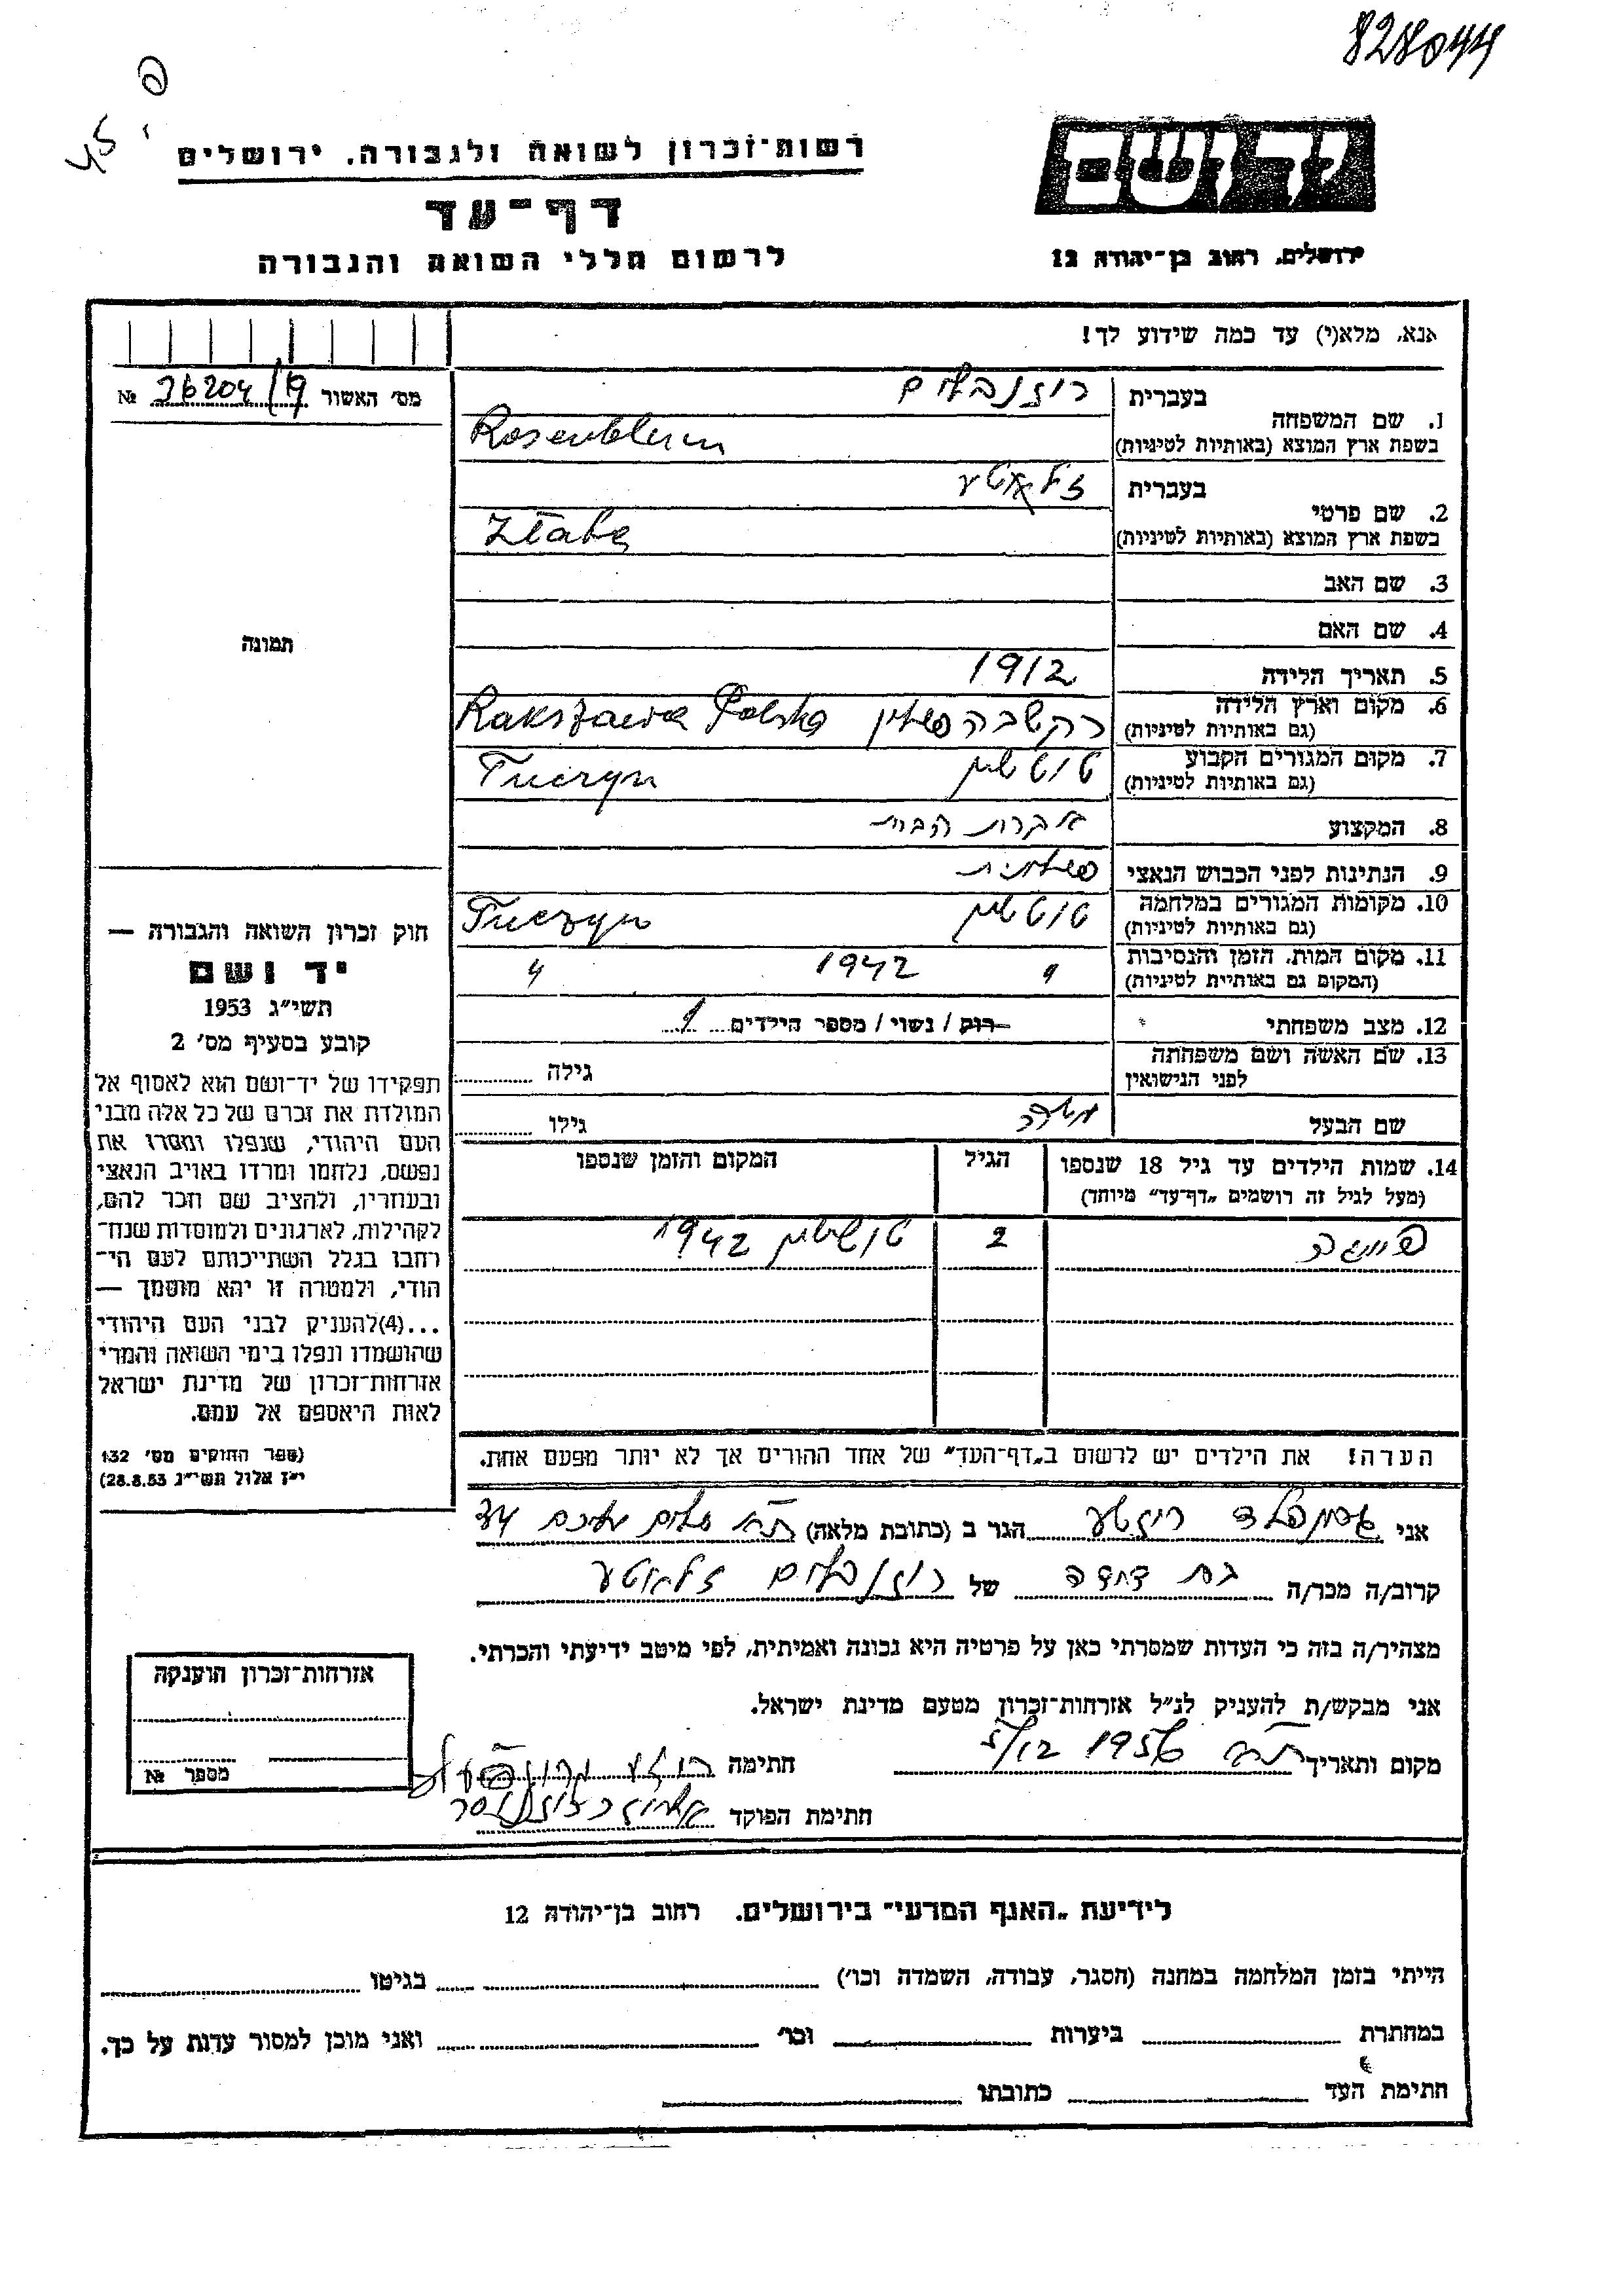 828044
רשות־זכרון לשואה ולגבורה, ירושלים
דף־עד
לרשום חללי השואה והגבורה
ידושם
ירושלים, רחוב בן־יהודה 12
אנא, מלא(י) עד כמה שידוע לך!
מס׳ האשור № 26204/
1. שם המשפחה
בעברית רוזנבלום
בשפת ארץ המוצא (באותיות לטיניות) Rosenblum
2. שם פרטי
בעברית זלאטע
בשפת ארץ המוצא (באותיות לטיניות) Złate
3. שם האב
4. שם האם
תמונה
5. תאריך הלידה 1912
6. מקום וארץ הלידה רקשבה פולין Rakszawa Polska
(גם באותיות לטיניות)
7. מקום המגורים הקבוע טוטשין Tuczyn
(גם באותיות לטיניות)
8. המקצוע עקרת הבית
9. הנתינות לפני הכבוש הנאצי פולנית
10. מקומות המגורים במלחמה טוטשין Tuczyn
(גם באותיות לטיניות)
11. מקום המות, הזמן והנסיבות " 1942 "
(המקום גם באותיית לטיניות)
12. מצב משפחתי רוק / נשוי / מספר הילדים 1
13. שם האשה ושם משפחתה גילה
לפני הנישואין
שם הבעל משה גילו
14. שמות הילדים עד גיל 18 שנספו הגיל המקום והזמן שנספו
(מעל לגיל זה רושמים „דף־עד״ מיוחד)
2 טוטשין 1942
הערה! את הילדים יש לרשום ב„דף־העד״ של אחד ההורים אך לא יותר מפעם אחת.
חוק זכרון השואה והגבורה —
יד ושם
תשי״ג 1953
קובע בסעיף מס׳ 2
תפקידו של יד־ושם הוא לאסוף אל
המולדת את זכרם של כל אלה מבני
העם היהודי, שנפלו ומסרו את
נפשם, נלחמו ומרדו באויב הנאצי
ובעוזריו, ולהציב שם וזכר להם,
לקהילות, לארגונים ולמוסדות שנח־
רחבו בגלל השתייכותם לעם הי־
הודי, ולמטרה זו יהא מוסמך —
...(4)להעניק לבני העם היהודי
שהושמדו ונפלו בימי השואה והמרי
אזרחות־זכרון של מדינת ישראל
לאות היאספם אל עמם.
(ספר החוקים מס׳ 132
י״ז אלול תשי״ג 28.8.53)
אני רוזטע הגר ב (כתובת מלאה) ת״א שלום עליכם 34
קרוב/ה מכר/ה בת דודה של רוזנבלום זלאטע
מצהיר/ה בזה כי העדות שמסרתי כאן על פרטיה היא נכונה ואמיתית, לפי מיטב ידיעתי והכרתי.
אני מבקש/ת להעניק לנ״ל אזרחות־זכרון מטעם מדינת ישראל.
מקום ותאריך ת״א 1956 חתימה
חתימת הפוקד
אזרחות־זכרון הוענקה
מספר №
לידיעת „האגף המדעי״ בירושלים. רחוב בן־יהודה 12
הייתי בזמן המלחמה במחנה (הסגר, עבודה, השמדה וכו׳) בגיטו
במחתרת ביערות וכו׳ ואני מוכן למסור עדות על כך.
חתימת העד כתובתו